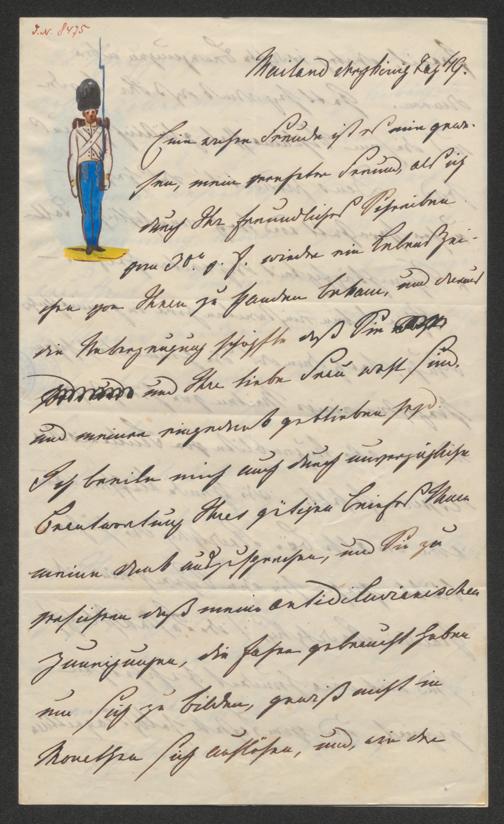 J.N. 8475
Mailand
Eine wahre Freude ist es mir gewe-
sen, mein verehrter Freund, als ich
durch Ihr freundliches Schreiben
vom 30n v. J. wieder ein Lebenszei-
chen von Ihnen zu Handen bekam, und daraus
die Ueberzeugung schöpfte daß Sie
und Ihre liebe Frau wohl sind,
und meiner eingedenk geblieben seyd.
Ich beeile mich auch durch unverzügliche
Beantwortung Ihres gütigen Briefes Ihnen
meinen Dank auszusprechen, und Sie zu
versichern daß meine antidiluvianischen
Zuneigungen, die Jahre gebraucht haben
um sich zu bilden, gewiß nicht in
Monathen sich auflösen, und, wie die